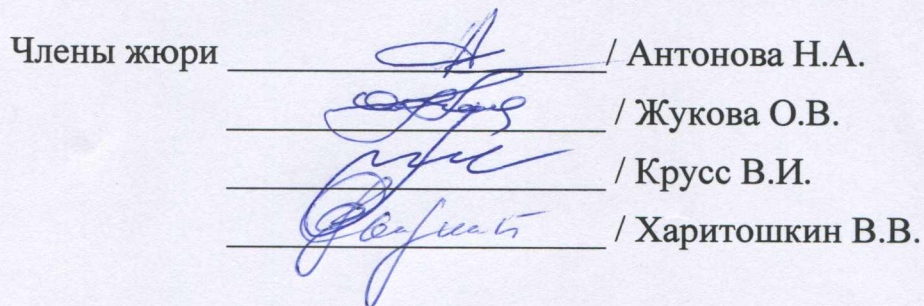 Члены жюри / Антонова Н.А.
/ Жукова О.В.
/ Крусс В.И.
/ Харитошкин В.В.